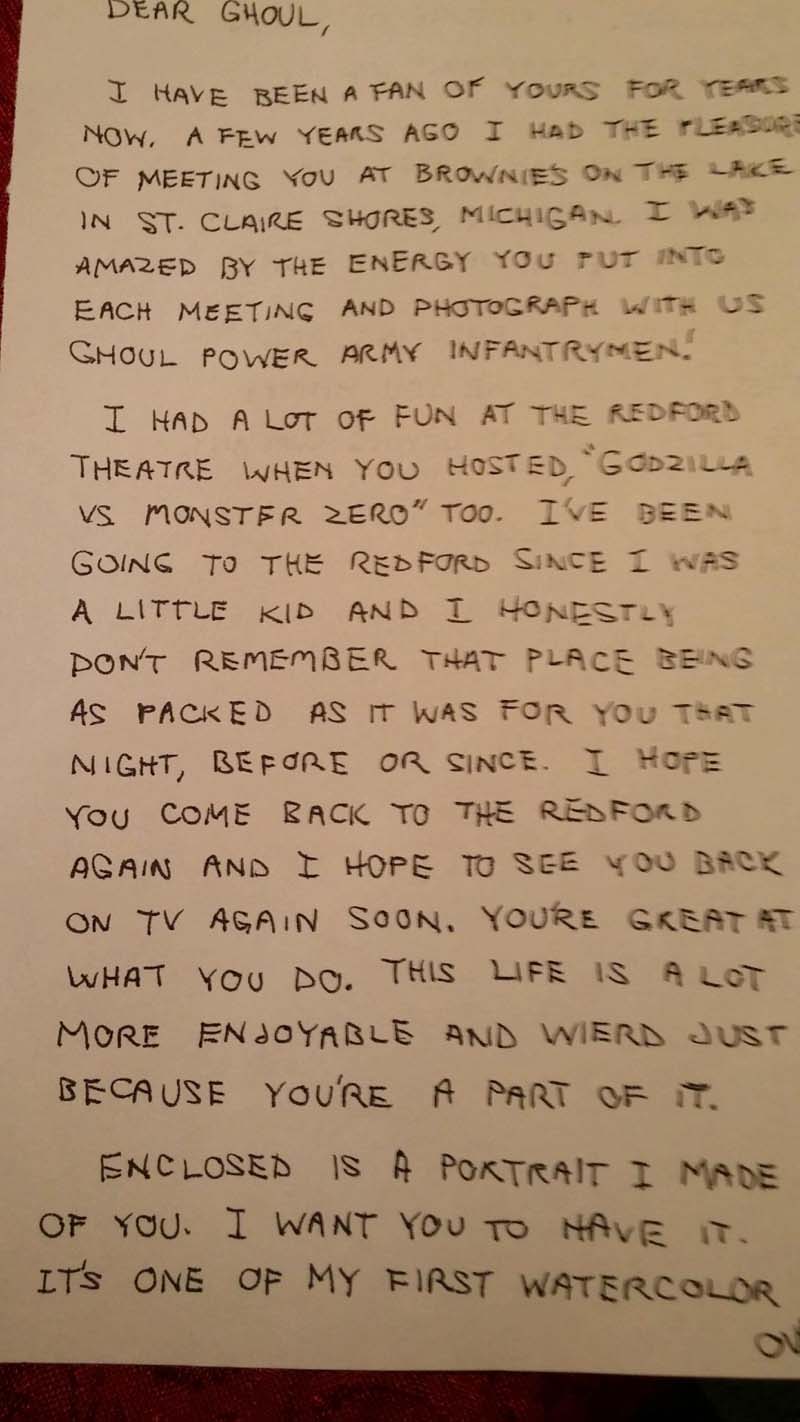 DEAR GHOUL,
I HAVE BEEN A FAN OF YOURS FOR YEARS
NOW. A FEW YEARS AGO I HAD THE PLEASURE
OF MEETING YOU AT BROWNIE'S ON THE LAKE
IN ST. CLAIRE SHORES, MICHIGAN. I WAS
AMAZED BY THE ENERGY YOU PUT INTO
EACH MEETING AND PHOTOGRAPH WITH US
GHOUL POWER ARMY INFANTRYMEN!
I HAD A LOT OF FUN AT THE REDFORD
THEATRE WHEN YOU HOSTED, "GODZILLA
VS MONSTER ZERO" TOO. I'VE BEEN
GOING TO THE REDFORD SINCE I WAS
A LITTLE KID AND I HONESTLY
DON'T REMEMBER THAT PLACE BEING
AS PACKED AS IT WAS FOR YOU THAT
NIGHT, BEFORE OR SINCE. I HOPE
YOU COME BACK TO THE REDFORD
AGAIN AND I HOPE TO SEE YOU BACK
ON TV AGAIN SOON. YOU'RE GREAT AT
WHAT YOU DO. THIS LIFE IS A LOT
MORE ENJOYABLE AND WIERD JUST
BECAUSE YOU'RE A PART OF IT.
ENCLOSED IS A PORTRAIT I MADE
OF YOU. I WANT YOU TO HAVE IT.
IT'S ONE OF MY FIRST WATERCOLOR